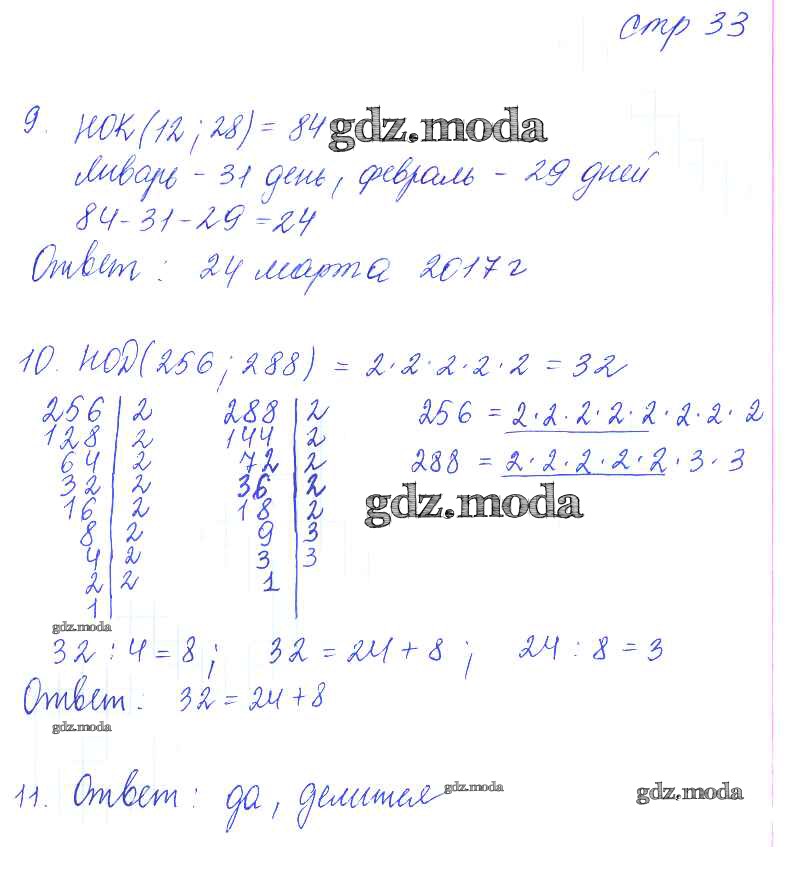 стр 33
9. НОК(12; 28) = 84 gdz.moda
Январь - 31 день, февраль - 29 дней
84-31-29=24
Ответ: 24 марта 2017 г
10. НОД(256; 288) = 2·2·2·2·2 = 32
256 | 2 288 | 2 256 = 2·2·2·2·2·2·2·2
128 | 2 144 | 2
64 | 2 72 | 2 288 = 2·2·2·2·2·3·3
32 | 2 36 | 2
16 | 2 18 | 2 gdz.moda
8 | 2 9 | 3
4 | 2 3 | 3
2 | 2 1
1
gdz.moda
32 : 4 = 8; 32 = 24 + 8; 24 : 8 = 3
Ответ: 32 = 24 + 8
gdz.moda
11. Ответ: да, делится gdz.moda gdz.moda